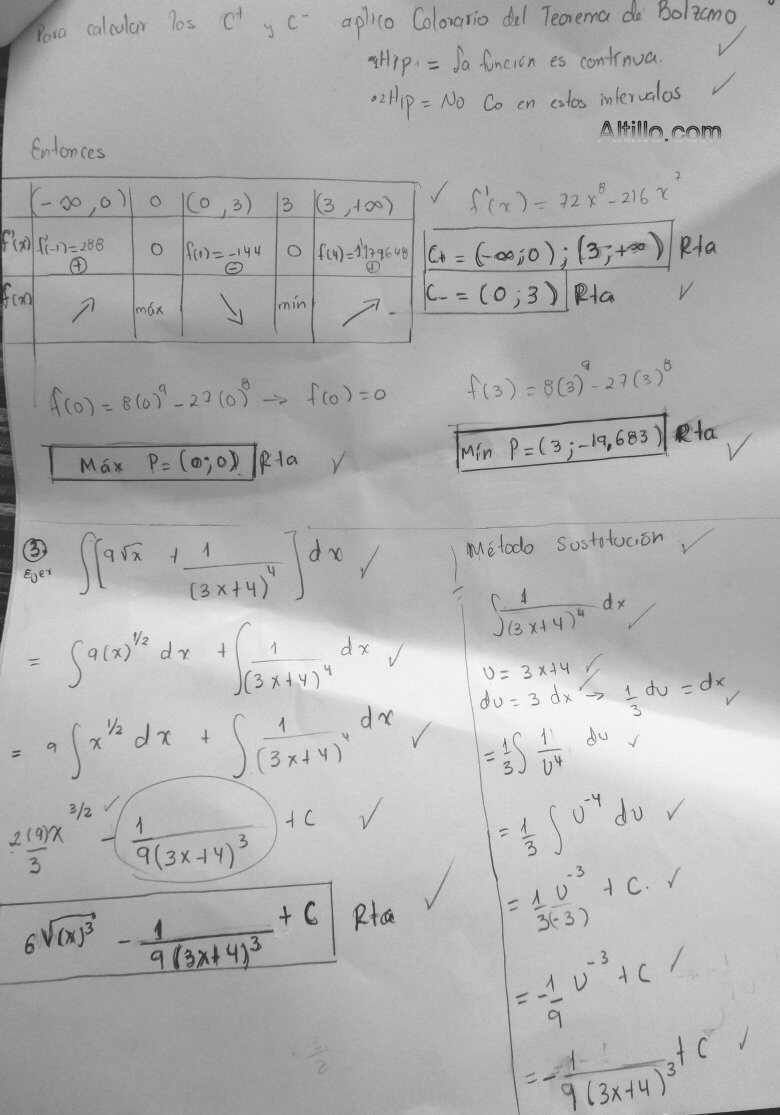 Para calcular los C⁺ y C⁻ aplico Colorario del Teorema de Bolzano
1Hip. = La función es continua.
2Hip = No C₀ en estos intervalos
Altillo.com
Entonces
(-∞,0) | 0 | (0,3) | 3 | (3,+∞)
f'(x) | f'(-1)=288 ⊕ | 0 | f(1)=-144 ⊖ | 0 | f(4)=1179648 ⊕
f(x) | ↗ | máx | ↘ | mín | ↗
✓ f'(x) = 72x⁸ - 216x⁷
C+ = (-∞;0);(3;+∞) Rta
C- = (0;3) Rta ✓
f(0) = 8(0)⁹ - 27(0)⁸ → f(0)=0
Máx P=(0;0) Rta ✓
f(3) = 8(3)⁹ - 27(3)⁸
Mín P=(3;-19,683) Rta ✓
③ Ejer ∫[9√x + 1/(3x+4)⁴] dx ✓
= ∫9(x)^1/2 dx + ∫1/(3x+4)⁴ dx ✓
= 9∫x^1/2 dx + ∫1/(3x+4)⁴ dx ✓
2(9)x^3/2 /3 ✓ - 1/9(3x+4)³ + C ✓
6√(x)³ - 1/9(3x+4)³ + C Rta ✓
Método Sustotución ✓
= ∫1/(3x+4)⁴ dx ✓
u = 3x+4 ✓
du = 3 dx → 1/3 du = dx ✓
= 1/3∫1/u⁴ du ✓
= 1/3 ∫u⁻⁴ du ✓
= 1/3 u⁻³/(-3) + C. ✓
= -1/9 u⁻³ + C ✓
= - 1/9(3x+4)³ + C ✓